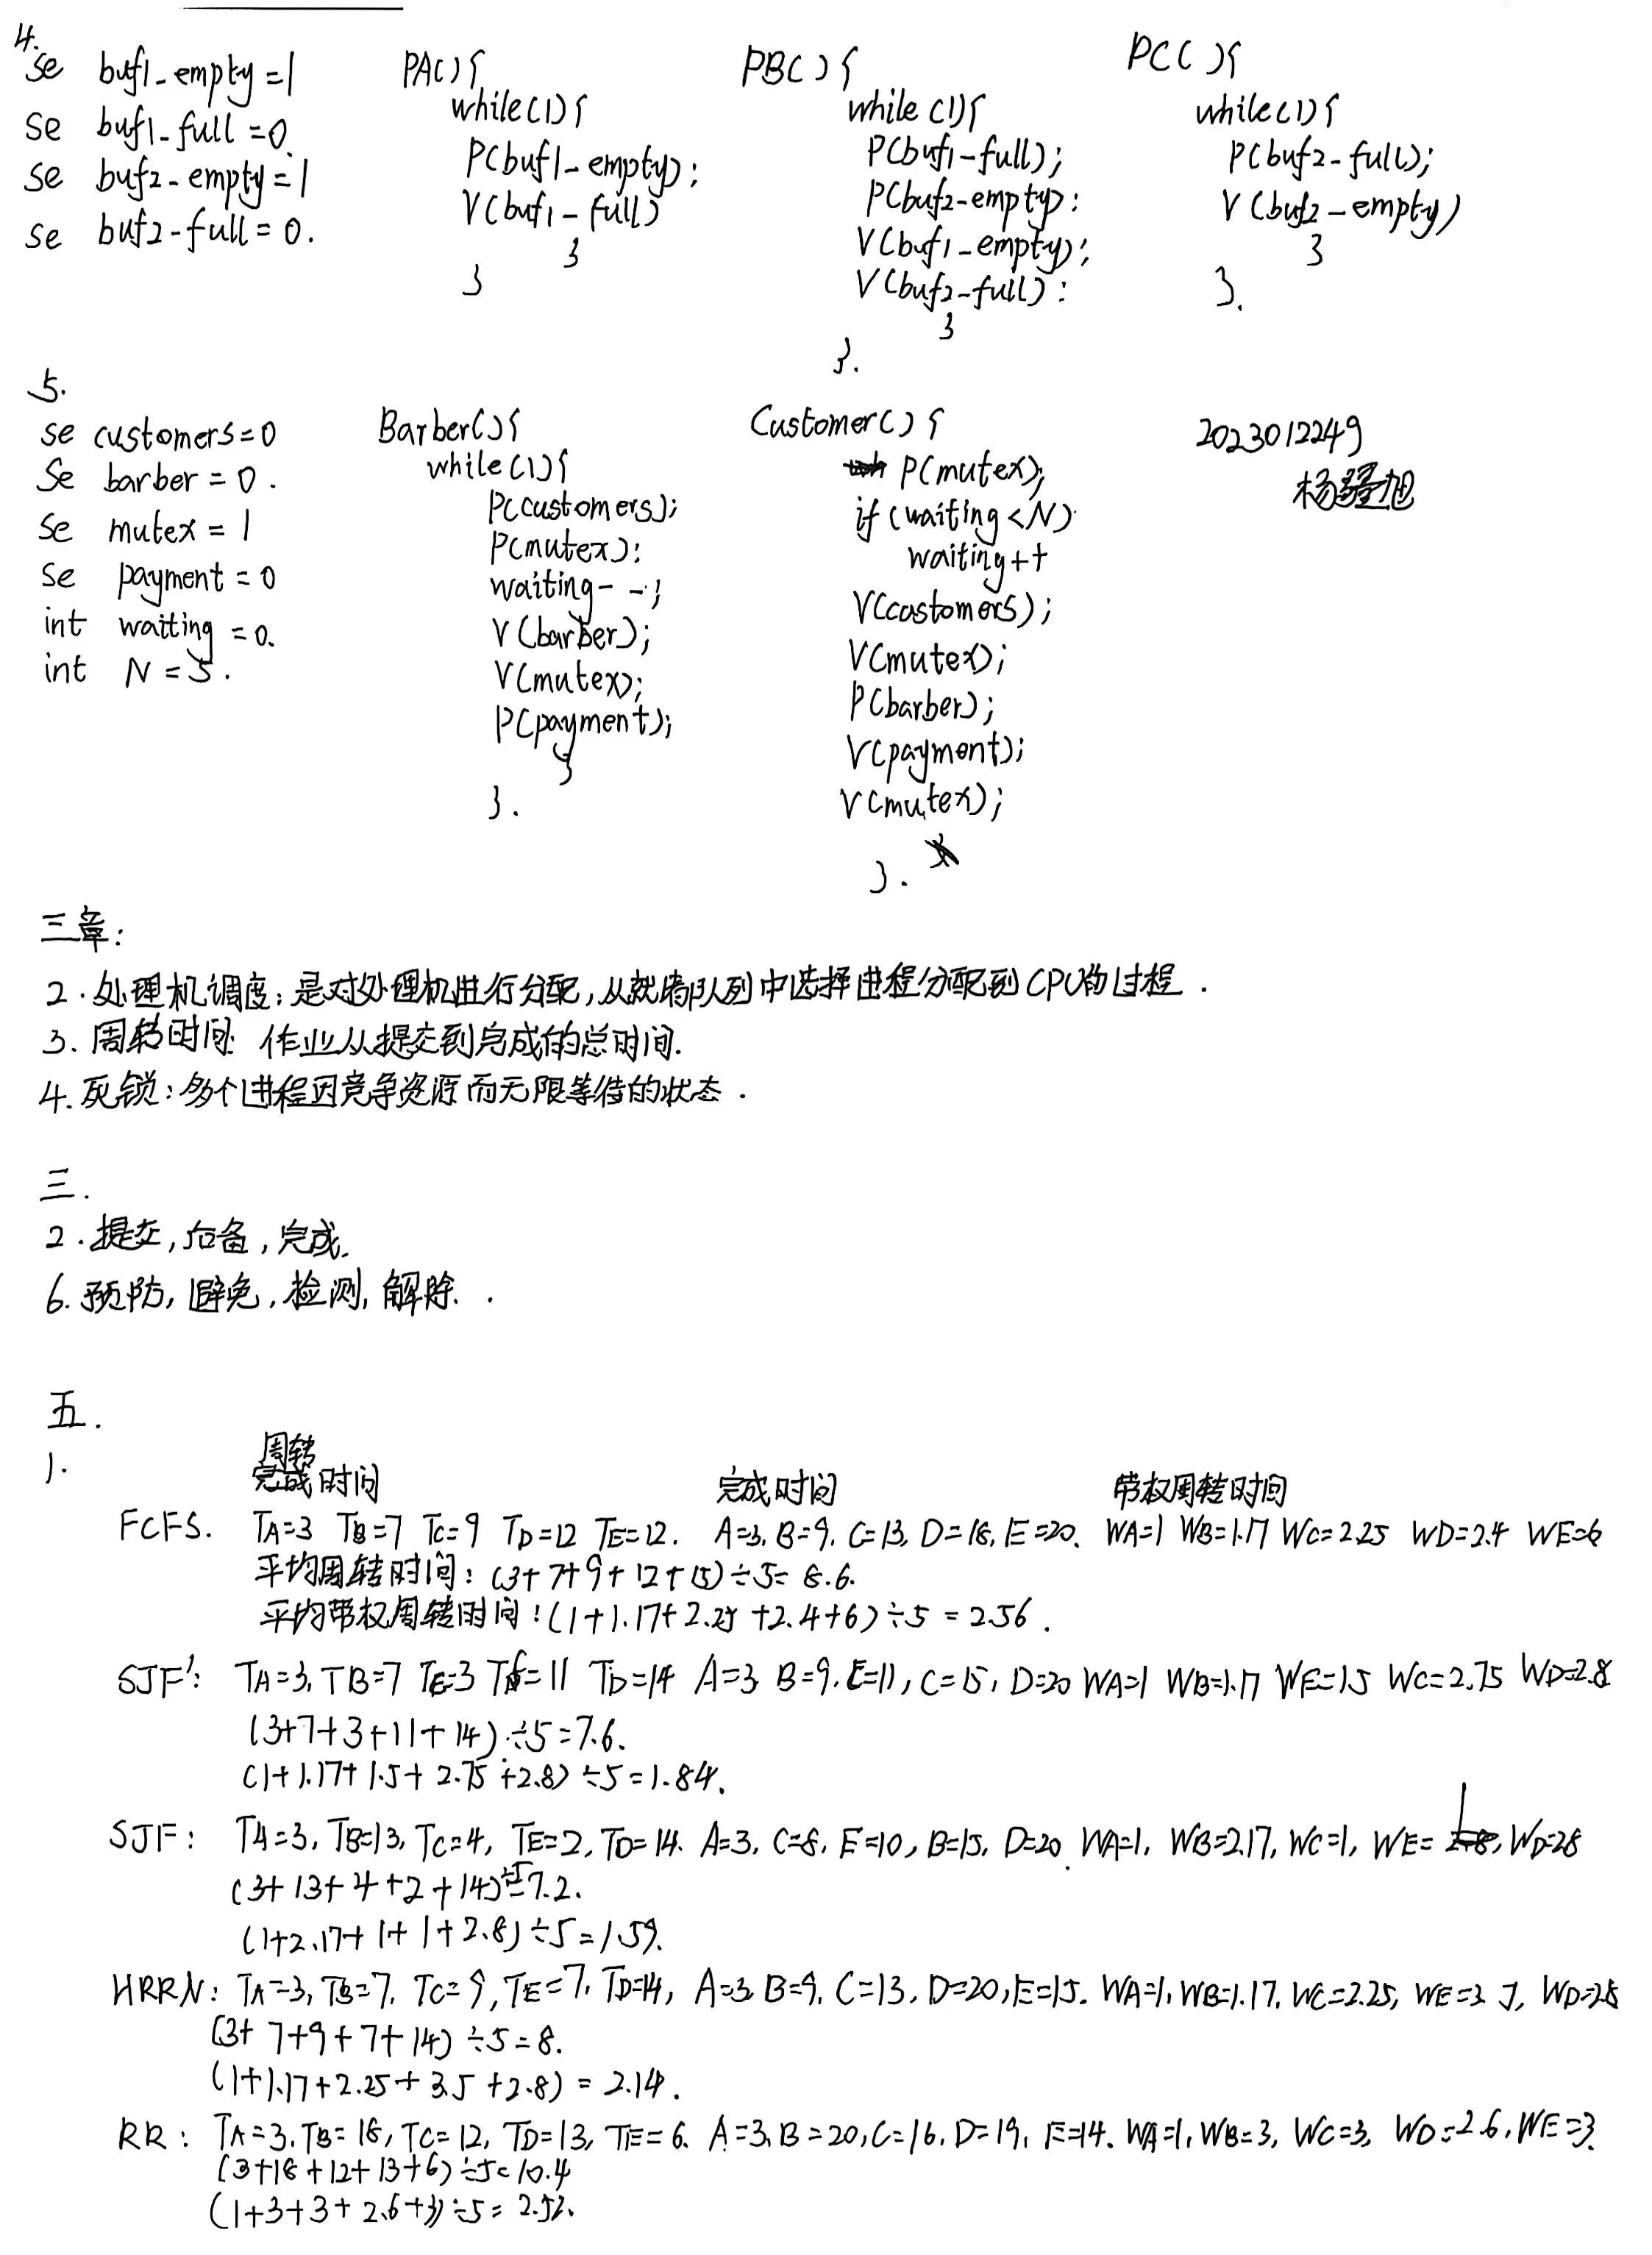 4.
se buf1-empty=1
se buf1-full=0.
se buf2-empty=1
se buf2-full=0.
PA(){
while(1){
P(buf1-empty);
V(buf1-full)
}
}
PB(){
while(1){
P(buf1-full);
P(buf2-empty):
V(buf1-empty);
V(buf2-full):
}
}.
PC(){
while(1){
P(buf2-full);
V(buf2-empty)
}
}.
5.
se customers=0
se barber=0.
se mutex=1
se payment=0
int waiting=0.
int N=5.
Barber(){
while(1){
P(customers);
P(mutex):
waiting--;
V(barber);
V(mutex);
P(payment);
}
}.
Customer(){
P(mutex);
if(waiting<N)
waiting++
V(customers);
V(mutex);
P(barber);
V(payment);
V(mutex);
}.
2023012249
杨旭
三章:
2.处理机调度:是对处理机进行分配,从就绪队列中选择进程分配到CPU的过程.
3.周转时间:作业从提交到完成的总时间.
4.死锁:多个进程因竞争资源而无限等待的状态.
三.
2.提交,后备,完成.
6.预防,避免,检测,解除.
五.
1.
周转
完成时间 完成时间 带权周转时间
FCFS. TA=3 TB=7 TC=9 TD=12 TE=12. A=3,B=9,C=13,D=18,E=20. WA=1 WB=1.17 WC=2.25 WD=2.4 WE=6
平均周转时间:(3+7+9+12+15)÷5=8.6.
平均带权周转时间:(1+1.17+2.25+2.4+6)÷5=2.56.
SJF: TA=3,TB=7 TE=3 TC=11 TD=14 A=3 B=9,E=11,C=15,D=20 WA=1 WB=1.17 WE=1.5 WC=2.75 WD=2.8
(3+7+3+11+14)÷5=7.6.
(1+1.17+1.5+2.75+2.8)÷5=1.84.
SJF: TA=3,TB=13,TC=4,TE=2,TD=14. A=3,C=8,E=10,B=15,D=20. WA=1,WB=2.17,WC=1,WE=1,WD=28
(3+13+4+2+14)÷5=7.2.
(1+2.17+1+1+2.8)÷5=1.59.
HRRN: TA=3,TB=7,TC=9,TE=7,TD=14, A=3,B=9,C=13,D=20,E=15. WA=1,WB=1.17,WC=2.25,WE=3.5,WD=2.8
(3+7+9+7+14)÷5=8.
(1+1.17+2.25+3.5+2.8)=2.14.
RR: TA=3,TB=18,TC=12,TD=13,TE=6. A=3,B=20,C=16,D=19,E=14. WA=1,WB=3,WC=3,WD=2.6,WE=3.
(3+18+12+13+6)÷5=10.4
(1+3+3+2.6+3)÷5=2.52.